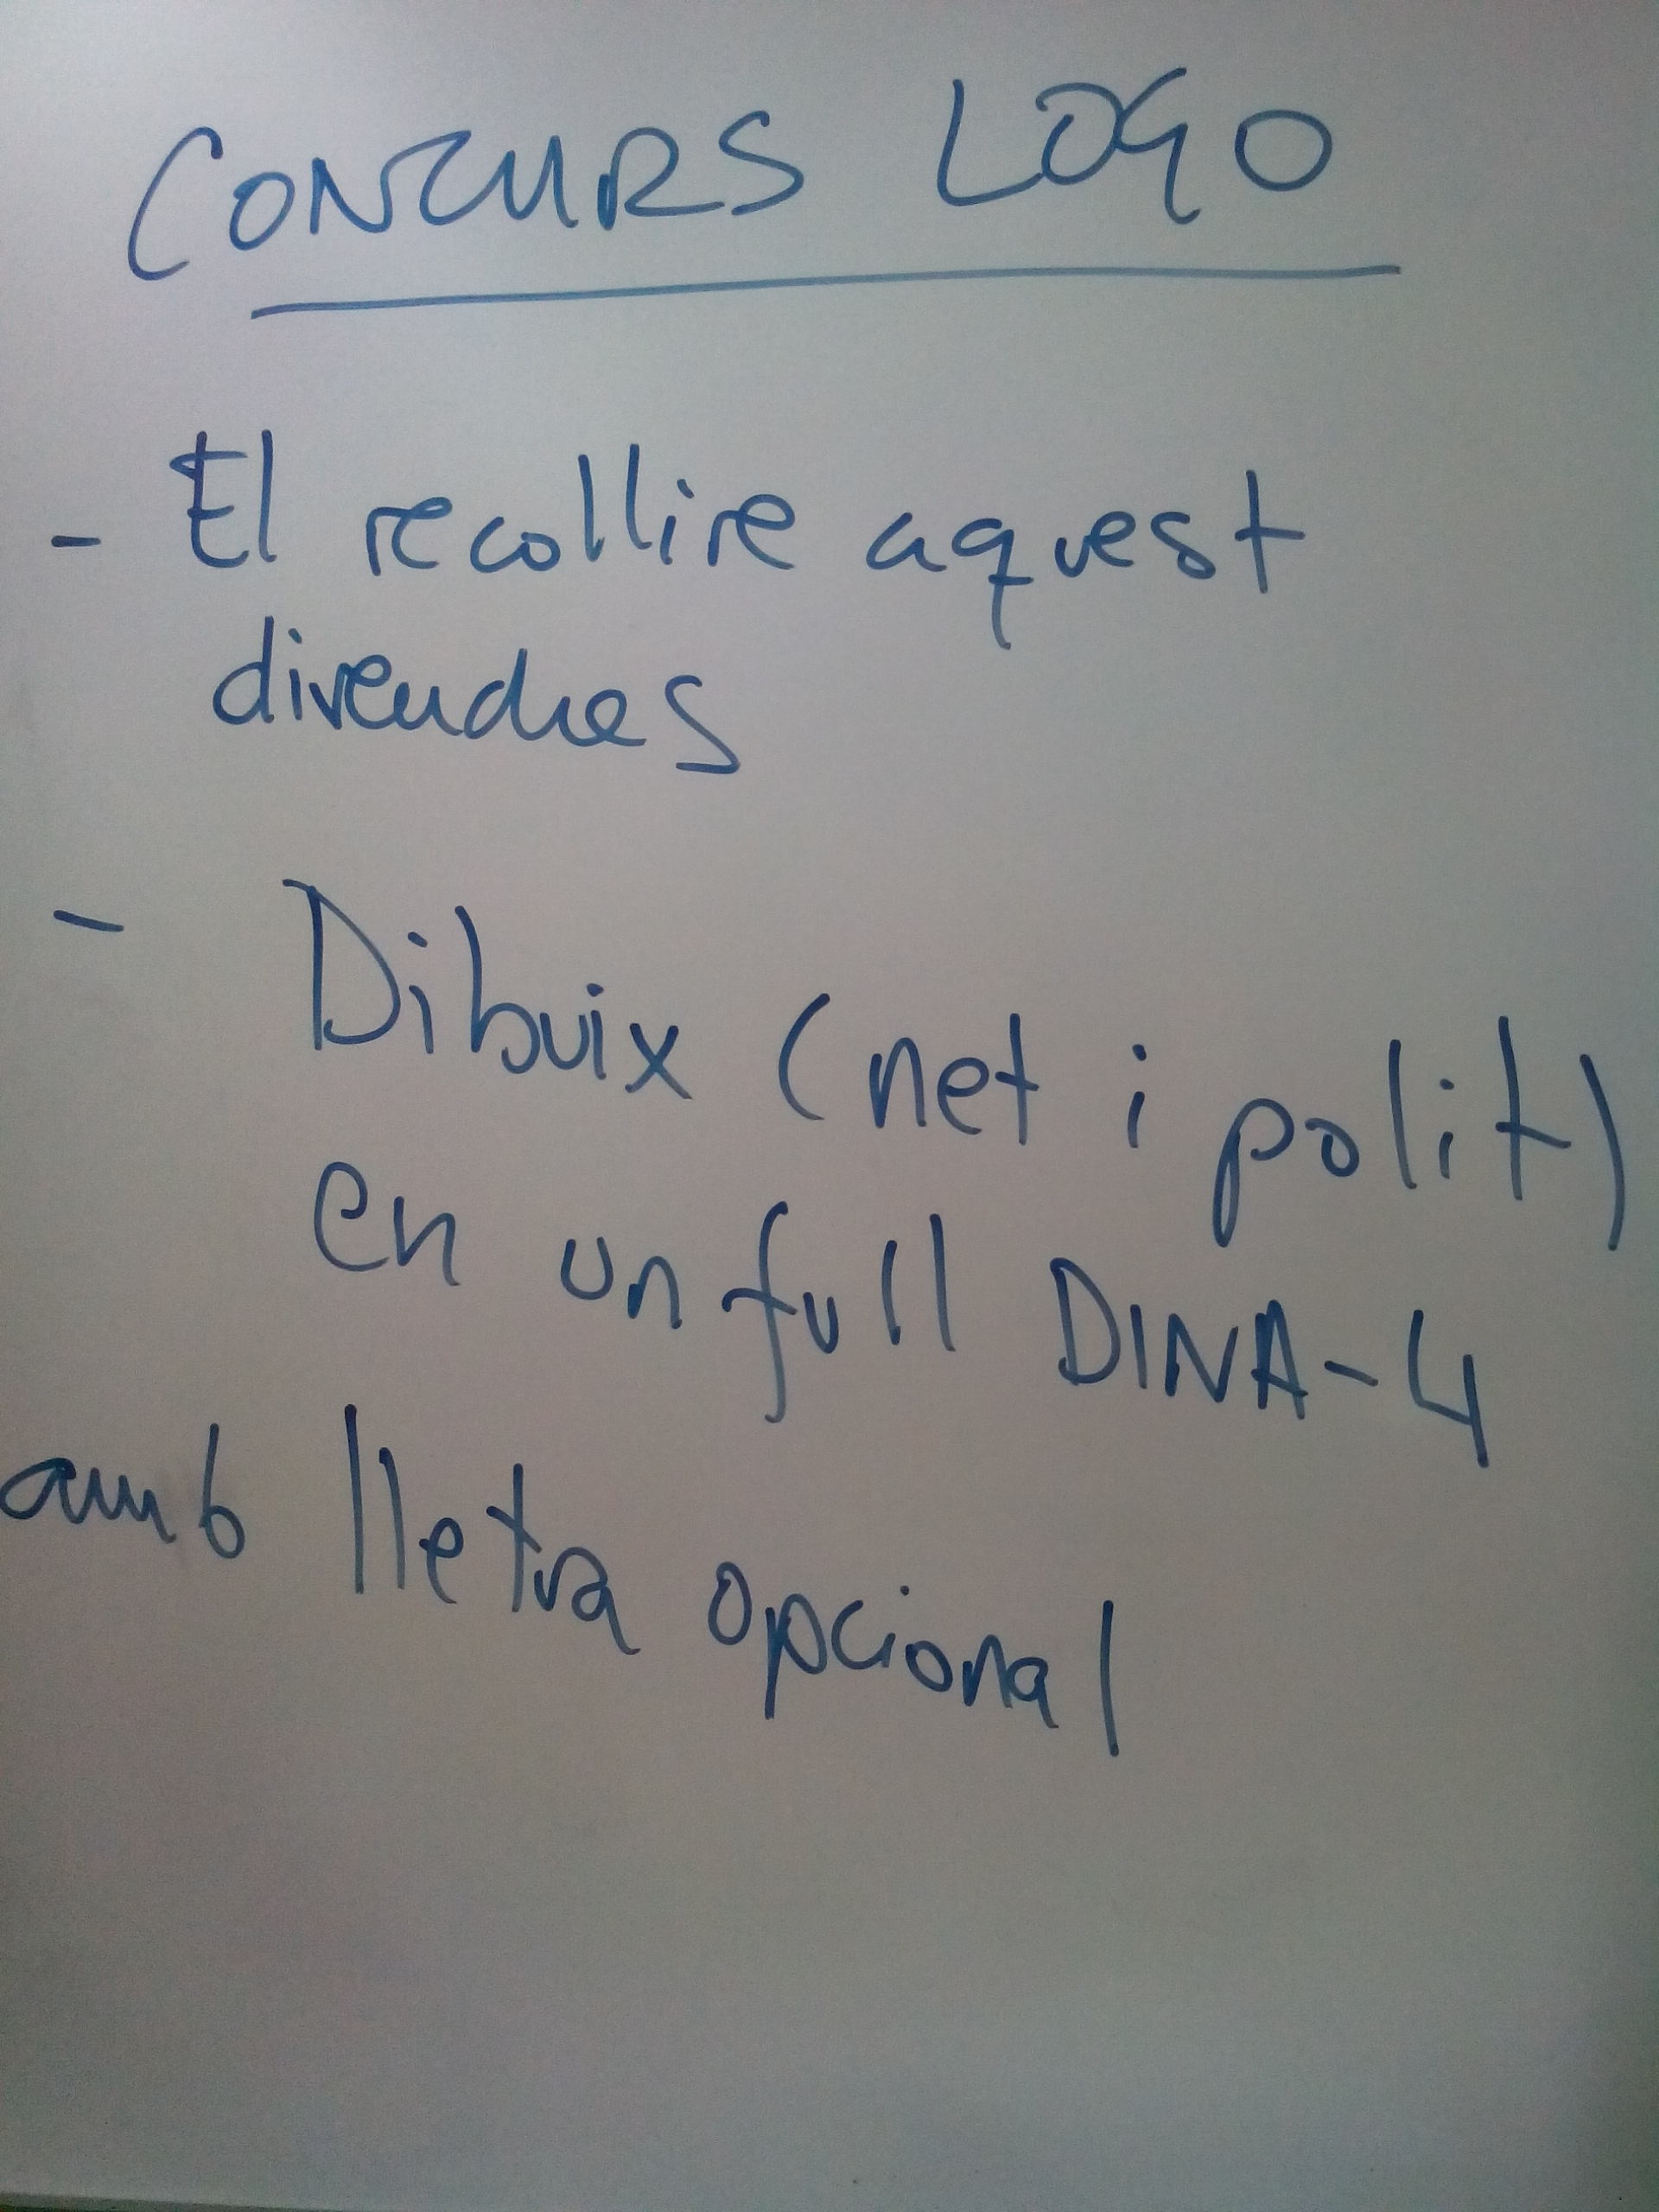 CONCURS LOGO
- El recollire aquest
divendres
- Dibuix (net i polit)
en un full DINA-4
amb lletra opcional